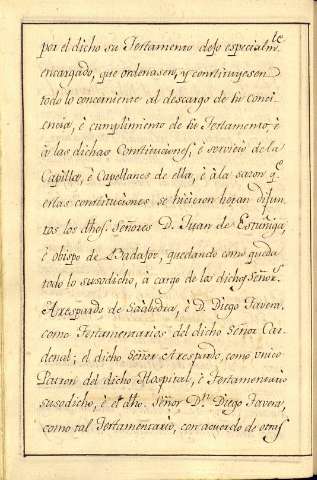 por el dicho su Testamento dejo especialm.te
encargado, que ordenasen, y constituyesen
todo lo concerniente al descargo de su conci
encia, è cumplimiento de su Testamento, è
à las dichas Constituciones, è servicio de la
Capilla, è Capellanes de ella, è à la sazon q.e
estas constituciones se hicieron heran difun
tos los dhos. Señores D. Juan de Estuñiga,
è obispo de Badajoz, quedando como queda
todo lo susodicho, à cargo de los dichos Señor.s
Arespardo de Saabedra, è D. Diego Tavera,
como Testamentarios del dicho Señor Car
denal; el dicho Señor Arespardo, como unico
Patron del dicho Hospital, è Testamentario
susodicho, è el dho. Señor D.n Diego Tavera,
como tal Testamentario, con acuerdo de otras